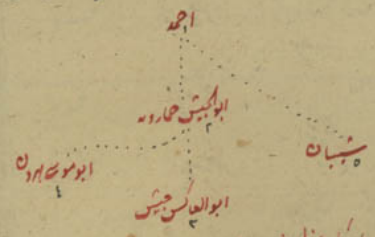 احمد
١
ابو الجيش خمارويه
٢
شيبان
٥
ابو موسى هرون
٤
ابو العساكر جيش
٣